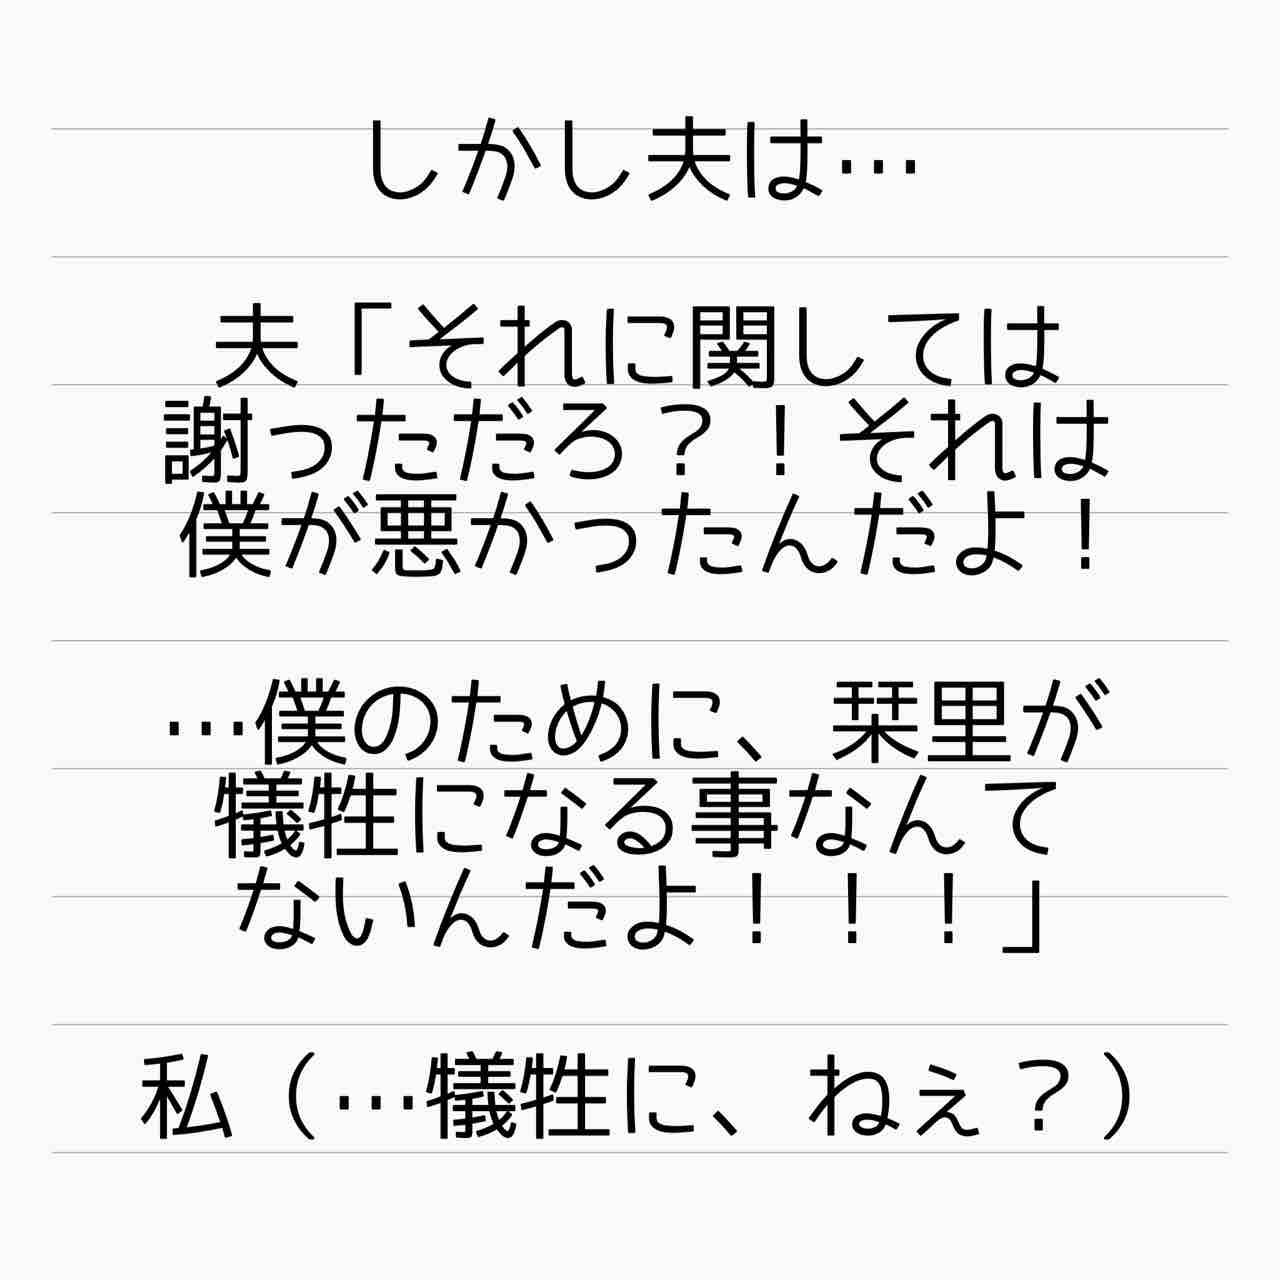 しかし夫は…
夫「それに関しては
謝っただろ？！それは
僕が悪かったんだよ！
…僕のために、栞里が
犠牲になる事なんて
ないんだよ！！！」
私（…犠牲に、ねぇ？）